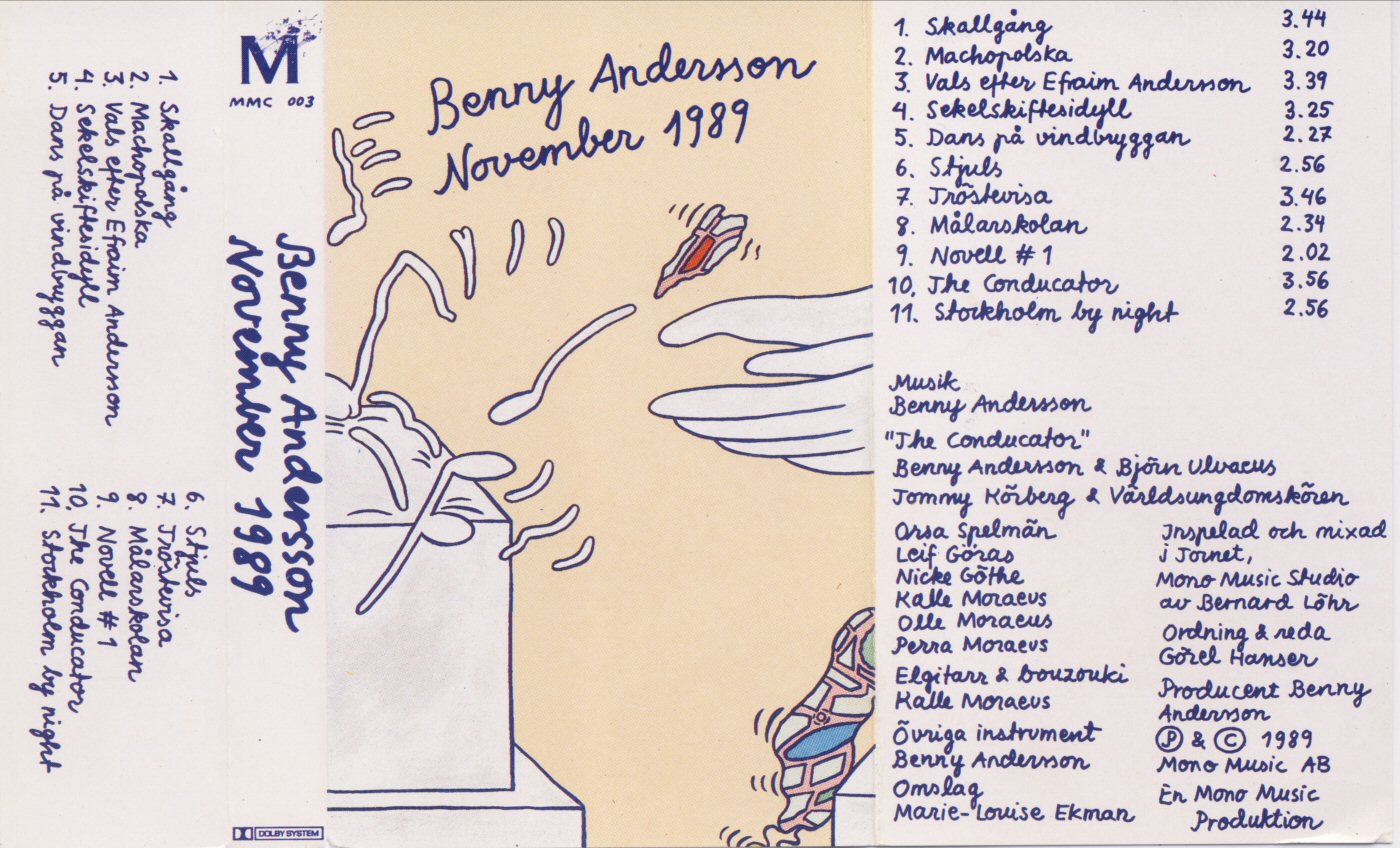 1. Skallgång
2. Machopolska
3. Vals efter Efraim Andersson
4. Sekelskiftesidyll
5. Dans på vindbryggan
6. Stjuls
7. Tröstevisa
8. Målarskolan
9. Novell #1
10. The Conducator
11. Stockholm by night
M
MMC 003
Benny Andersson
November 1989
DOLBY SYSTEM
Benny Andersson
November 1989
1. Skallgång 3.44
2. Machopolska 3.20
3. Vals efter Efraim Andersson 3.39
4. Sekelskiftesidyll 3.25
5. Dans på vindbryggan 2.27
6. Stjuls 2.56
7. Tröstevisa 3.46
8. Målarskolan 2.34
9. Novell #1 2.02
10. The Conducator 3.56
11. Stockholm by night 2.56
Musik
Benny Andersson
"The Conducator"
Benny Andersson & Björn Ulvaeus
Tommy Körberg & Världsungdomskören
Orsa Spelmän
Leif Göras
Nicke Göthe
Kalle Moraeus
Olle Moraeus
Perra Moraeus
Elgitarr & bouzouki
Kalle Moraeus
Övriga instrument
Benny Andersson
Omslag
Marie-Louise Ekman
Inspelad och mixad
i Tornet,
Mono Music Studio
av Bernard Löhr
Ordning & reda
Görel Hanser
Producent Benny
Andersson
℗ & © 1989
Mono Music AB
En Mono Music
Produktion